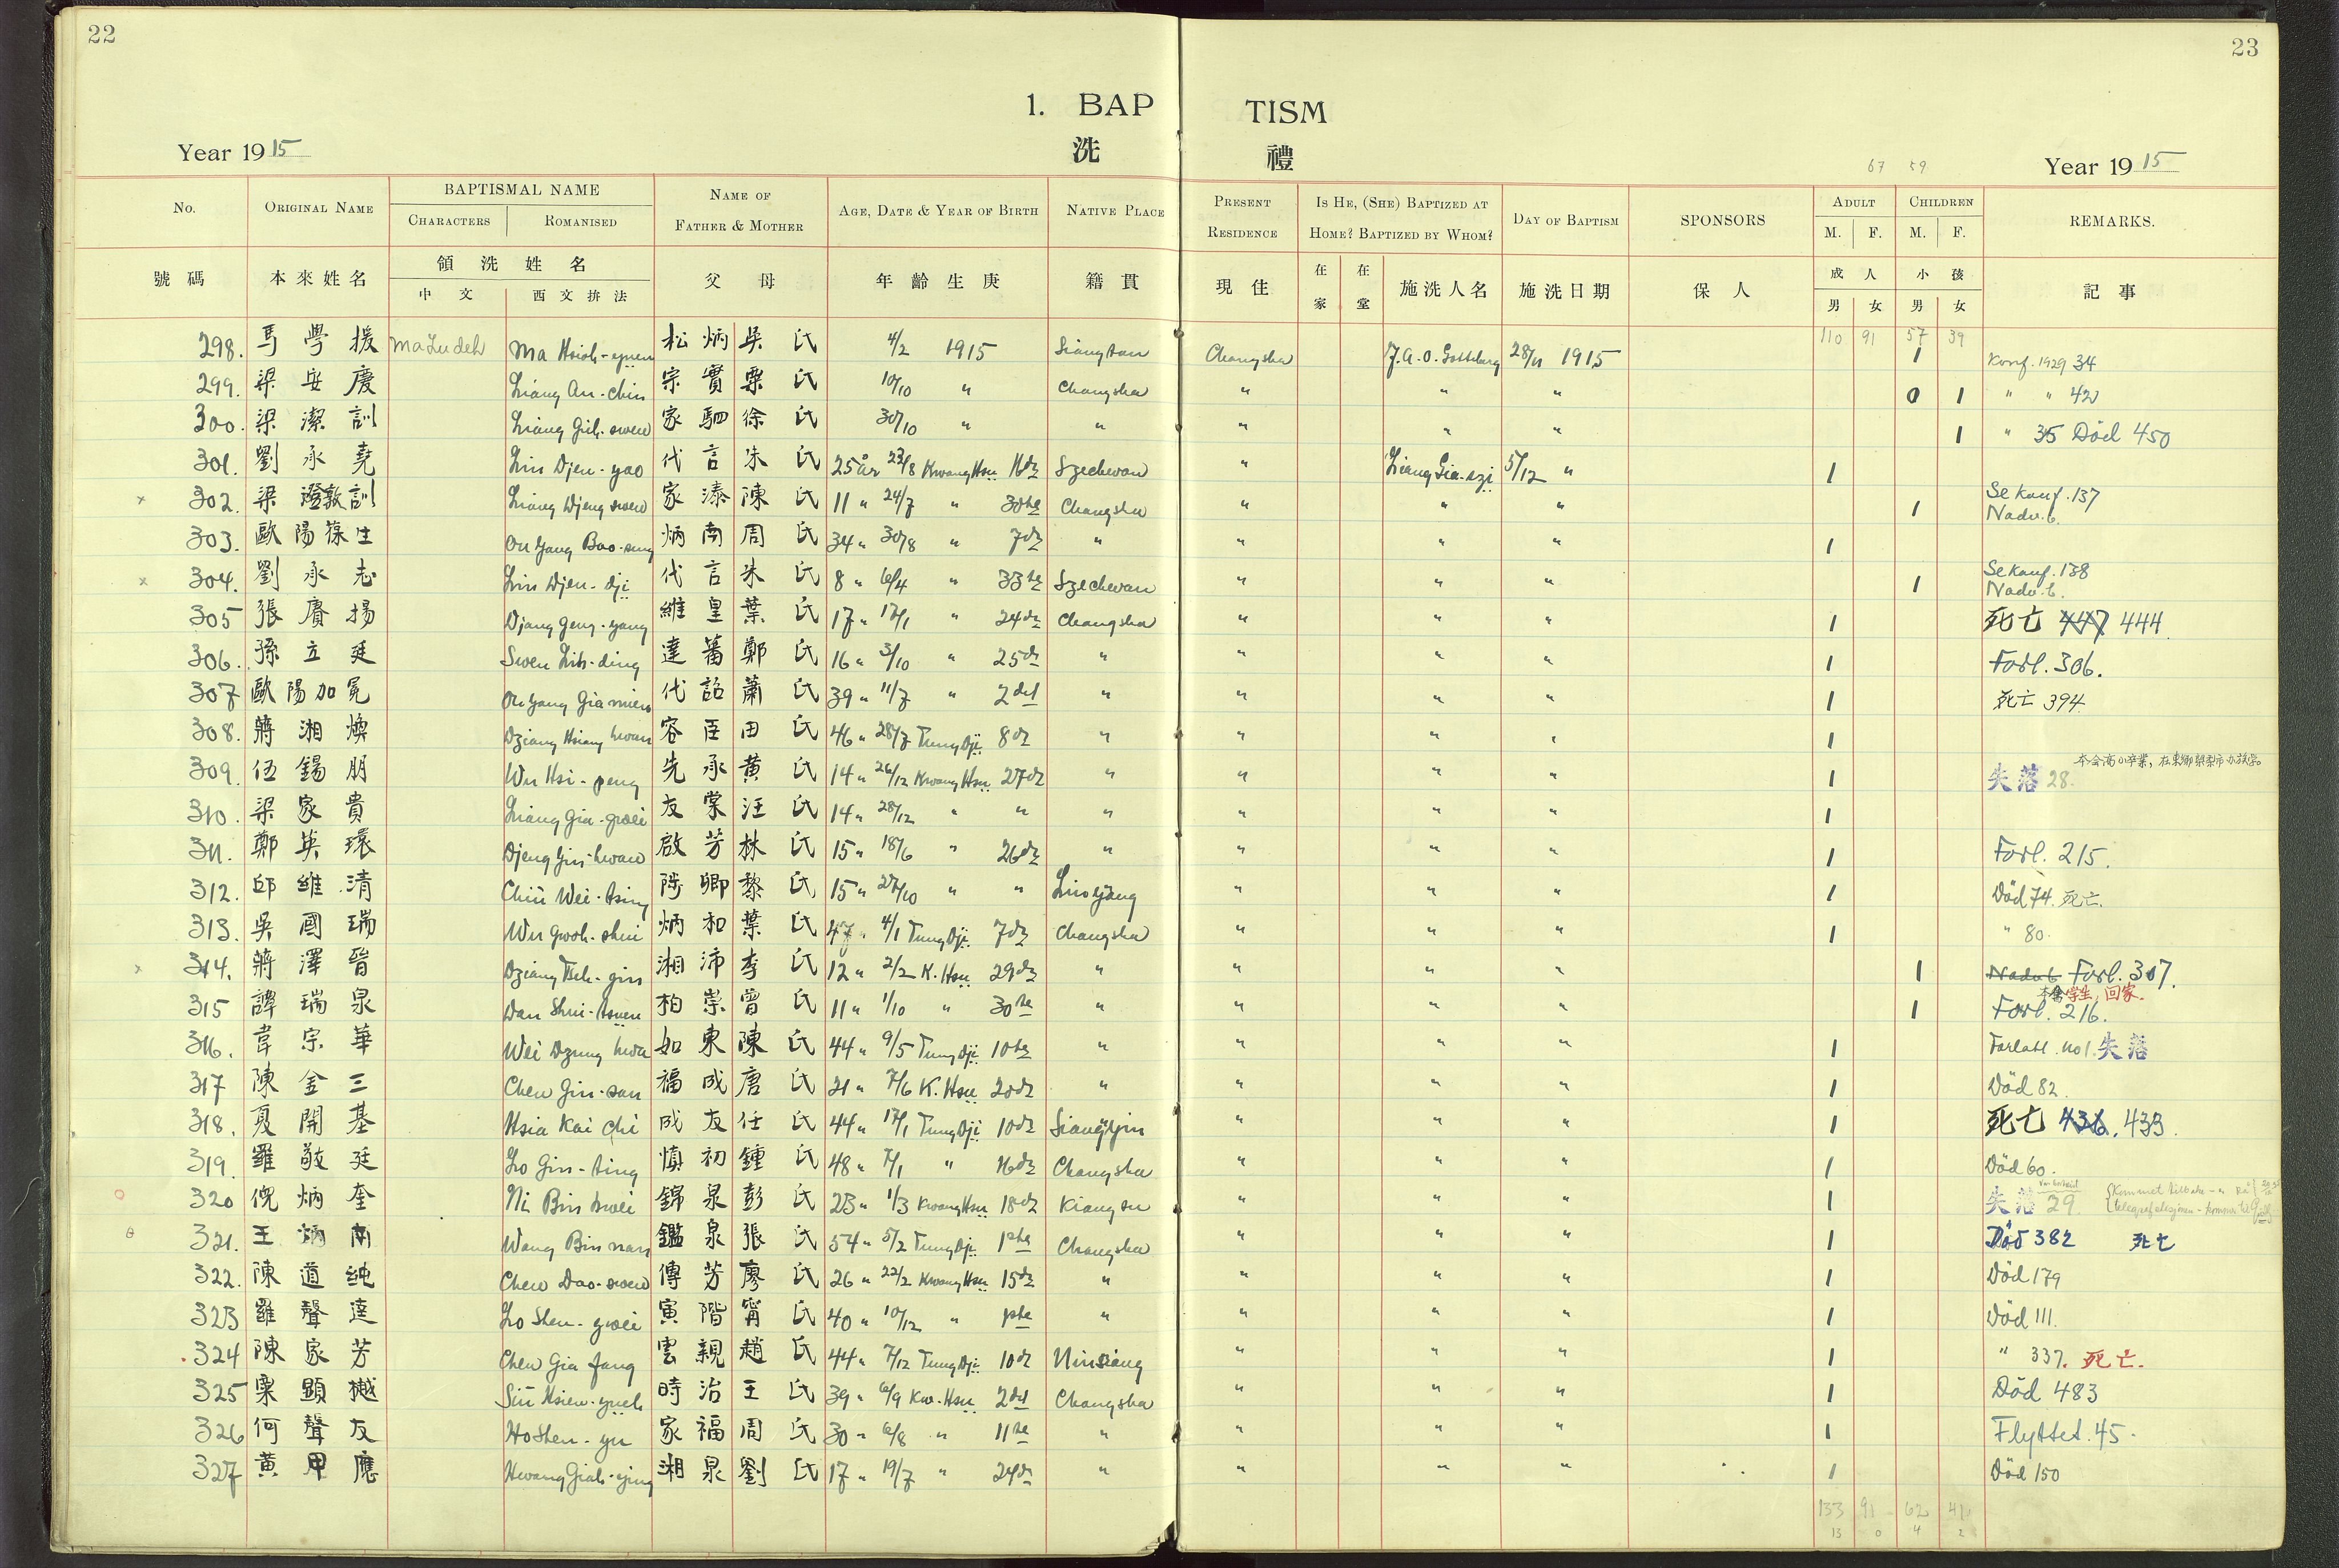 22
23
1. BAP TISM
洗 禮
Year 1915
67 59
Year 1915
No. ORIGINAL NAME BAPTISMAL NAME NAME OF FATHER & MOTHER AGE, DATE & YEAR OF BIRTH NATIVE PLACE PRESENT RESIDENCE IS HE, (SHE) BAPTIZED AT HOME? BAPTIZED BY WHOM? DAY OF BAPTISM SPONSORS ADULT CHILDREN REMARKS.
CHARACTERS ROMANISED M. F. M. F.
號碼 本來姓名 領洗姓名 父母 年齡生庚 籍貫 現住 在家 在堂 施洗人名 施洗日期 保人 成人 小孩 記事
中文 西文拚法 男 女 男 女
110 91 57 39
298. 馬學援 Ma Hsioh-yuen 松炳 吳氏 4/2 1915 Siangtan Changsha J.A.O. Gotteberg 28/11 1915 1 Konf. 1929 34
299. 梁安慶 Liang An-chin 宗實 栗氏 10/10 " Changsha " " " 0 1 " " 42
300. 梁潔訓 Liang Gieh-swen 家駟 徐氏 30/10 " " " " " 1 " 35 Död 450
301. 劉承堯 Liu Djen-yao 代言 朱氏 25 år 23/8 Kwang Hsu 16de Szechwan " Liang Gia-szi 5/12 " 1
302. 梁澄敦訓 Liang Djeng swen 家溱 陳氏 11 " 24/7 " 30te Changsha " " " 1 Se konf. 137 Nadv. b.
303. 歐陽葆生 Ou Yang Bao-seng 炳南 周氏 34 " 30/8 " 7de " " " " 1
304. 劉承志 Liu Djen-dji 代言 朱氏 8 " 6/4 " 33te Szechwan " " " 1 Se konf. 138 Nadv. b.
305 張賡揚 Djang Geng-yang 維皇 葉氏 17 " 17/1 " 24de Changsha " " " 1 死亡 447 444.
306. 孫立廷 Swen Lih-ding 達蕃 鄭氏 16 " 3/10 " 25de " " " " 1 Forl. 306.
307 歐陽加冕 Ou Yang Gia mien 代詔 蕭氏 39 " 11/7 " 2det " " " " 1 死亡 394
308. 蔣湘煥 Dziang Hsiang hwan 容臣 田氏 46 " 28/7 Tung Dji 8de " " " " 1
309. 伍錫朋 Wu Hsi-peng 先承 黃氏 14 " 26/12 Kwang Hsu 27de " " " " 1 失落 28.
310. 梁家貴 Liang Gia-gwei 友棠 汪氏 14 " 28/12 " " " " " " 1
311. 鄭英環 Djeng Yin-hwan 啟芳 林氏 15 " 18/6 " 26de " " " " 1 Forl. 215.
312. 邱維清 Chiu Wei-tsing 陔卿 黎氏 15 " 27/10 " " Liuyang " " " 1 Död 74. 死亡.
313. 吳國瑞 Wu Gwoh-shui 炳和 葉氏 47 " 4/1 Tung Dji 7de Changsha " " " 1 " 80.
314. 蔣澤晉 Dziang Tseh-gin 湘沛 李氏 12 " 2/2 K. Hsu 29de " " " " 1 Nadv. b Forl. 307.
315 譚瑞泉 Dan Shui-tsuen 柏崇 曾氏 11 " 1/10 " 30te " " " " 1 學生, 回家. Forl. 216.
316. 韋宗華 Wei Dzung hwa 如東 陳氏 44 " 9/5 Tung Dji 10de " " " " 1 Forlatt. no 1. 失落
317 陳金三 Chen Gin-san 福成 唐氏 21 " 7/6 K. Hsu 20de " " " " 1 Död 82.
318. 夏開基 Hsia Kai Chi 成友 任氏 44 " 17/1 Tung Dji 10de Siangyin " " " 1 死亡 436. 433.
319. 羅敬廷 Lo Gin-ting 慎初 鍾氏 48 " 7/1 " 16de Changsha " " " 1 Död 60.
320 倪炳奎 Ni Bin kwei 錦泉 彭氏 23 " 1/3 Kwang Hsu 18de Kiangsu " " " 1 失落 29.
321. 王炳南 Wang Bin nan 鑑泉 張氏 54 " 5/2 Tung Dji 1ste Changsha " " " 1 Död 382 死亡
322. 陳道純 Chen Dao-swen 傳芳 廖氏 26 " 22/2 Kwang Hsu 15de " " " " 1 Död 179
323 羅聲達 Lo Shen-gwei 寅階 甯氏 40 " 10/12 " 1ste " " " " 1 Död 111.
324 陳家芳 Chen Gia fang 雲親 趙氏 44 " 7/12 Tung Dji 10de Ninsiang " " " 1 " 337. 死亡.
325 栗顯樾 Siü Hsien-yueh 時治 王氏 39 " 6/9 Kw. Hsu 2det Changsha " " " 1 Död 483
326 何聲友 Ho Shen-yu 家福 周氏 30 " 6/8 " 11te " " " " 1 Flyttet. 45.
327 黃甲應 Hwang Giah-ying 湘泉 劉氏 17 " 19/7 " 24de " " " " 1 Död 150
133 91 62 41
13 0 4 2